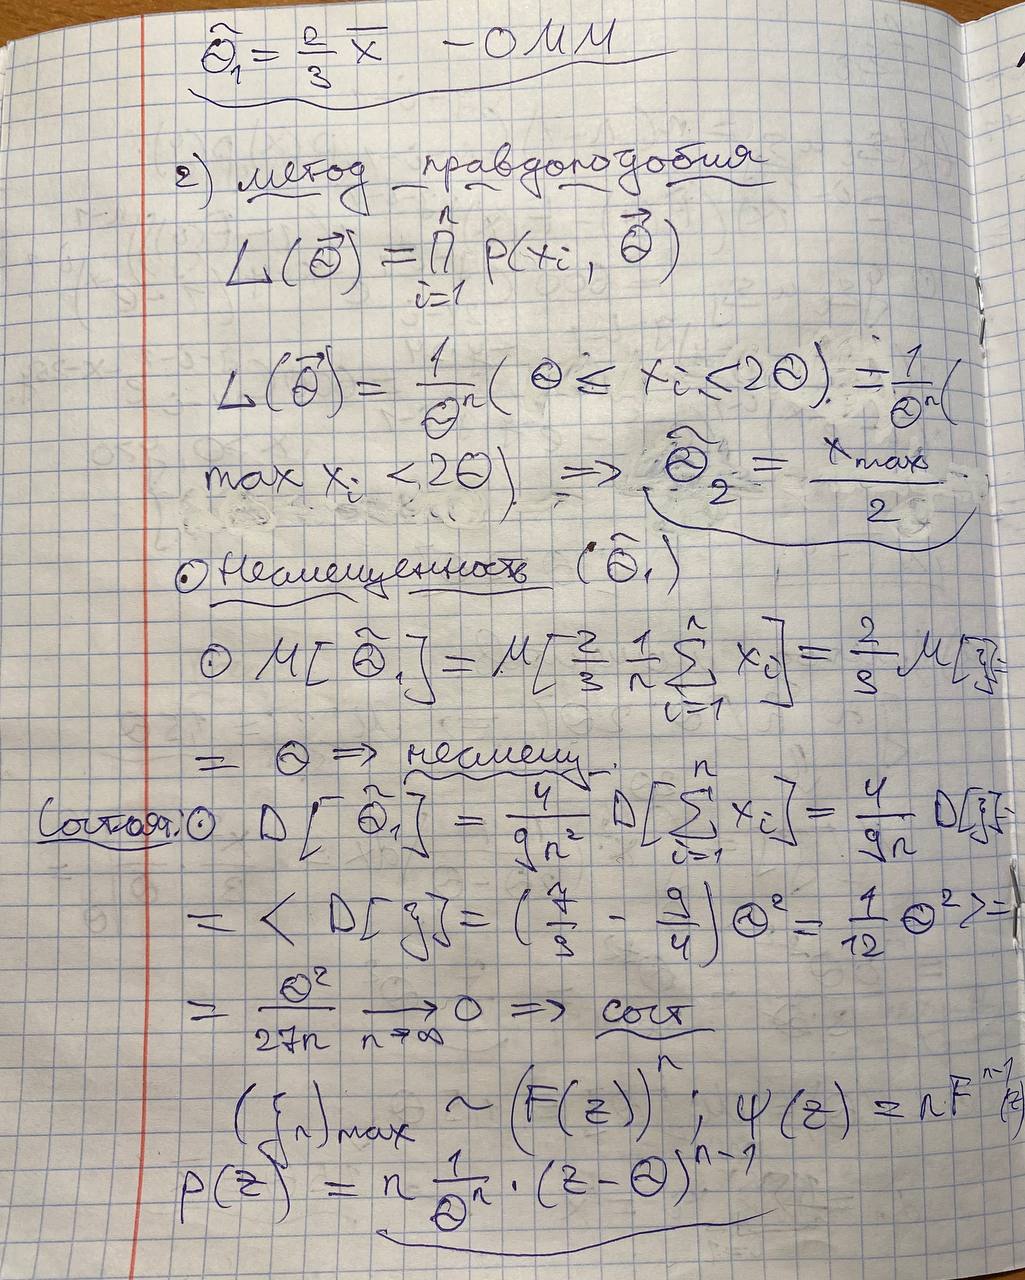 Θ̃₁ = 2/3 x̄ – ОММ
2) метод правдоподобия
L(Θ⃗) = ∏ⁿᵢ₌₁ p(xᵢ, Θ⃗)
L(Θ⃗) = 1/Θⁿ ( Θ ≤ xᵢ < 2Θ ) = 1/Θⁿ (
max xᵢ < 2Θ ) ⇒ Θ̃₂ = xmax / 2
⊙ Несмещенность (Θ̃₁)
⊙ M[Θ̃₁] = M[2/3 1/n ∑ⁿᵢ₌₁ xᵢ] = 2/3 M[ξ] =
= Θ ⇒ несмещ.
Состоят. ⊙ D[Θ̃₁] = 4/9n² D[∑ⁿᵢ₌₁ xᵢ] = 4/9n D[ξ] =
= < D[ξ] = (7/3 – 9/4) Θ² = 1/12 Θ² > =
= Θ²/27n →n→∞ 0 ⇒ сост
(ξₙ)max ~ (F(z))ⁿ ; ψ(z) = nFⁿ⁻¹(z)
p(z) = n 1/Θⁿ · (z – Θ)ⁿ⁻¹